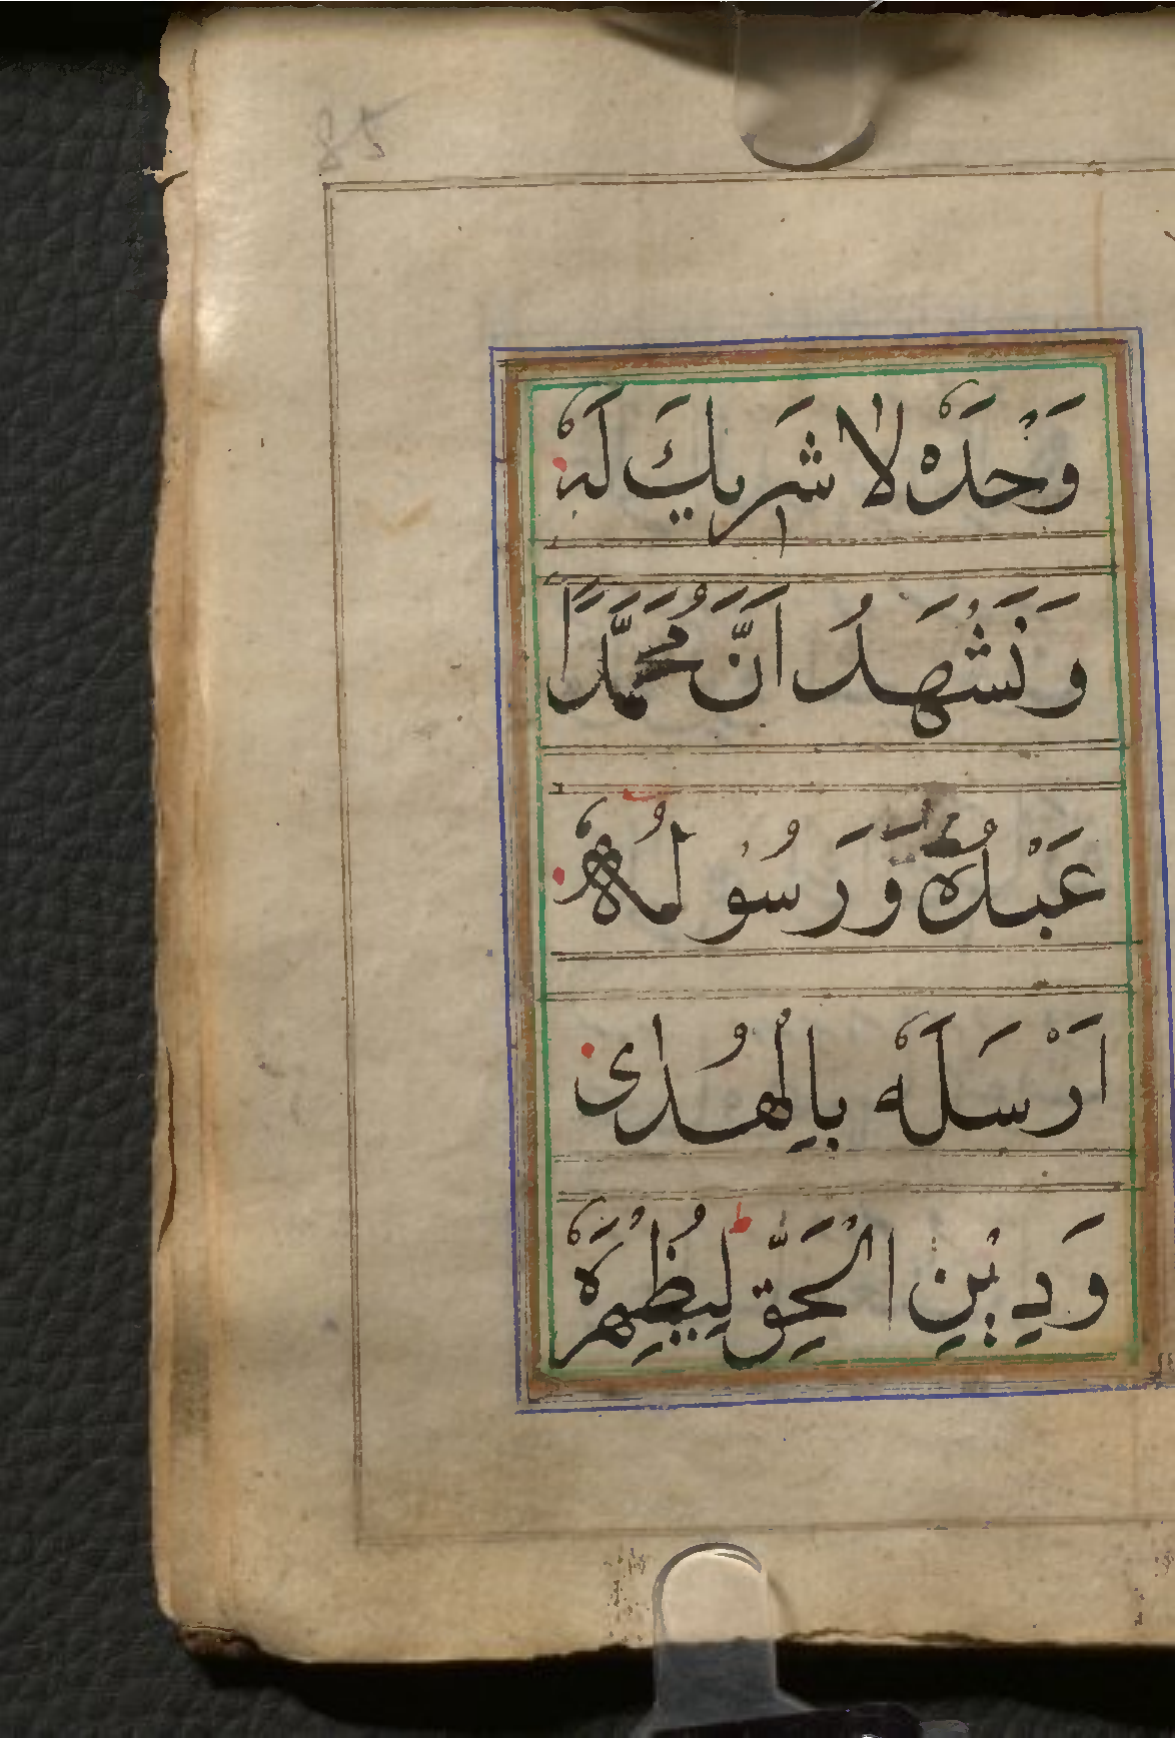 85
وَحْدَهٗ لَا شَرِيكَ لَهٗ
وَنَشْهَدُ اَنَّ مُحَمَّدًا
عَبْدُهٗ وَرَسُولُهٗ
اَرْسَلَهٗ بِالْهُدٰى
وَدِيْنِ الْحَقِّ لِيُظْهِرَهٗ